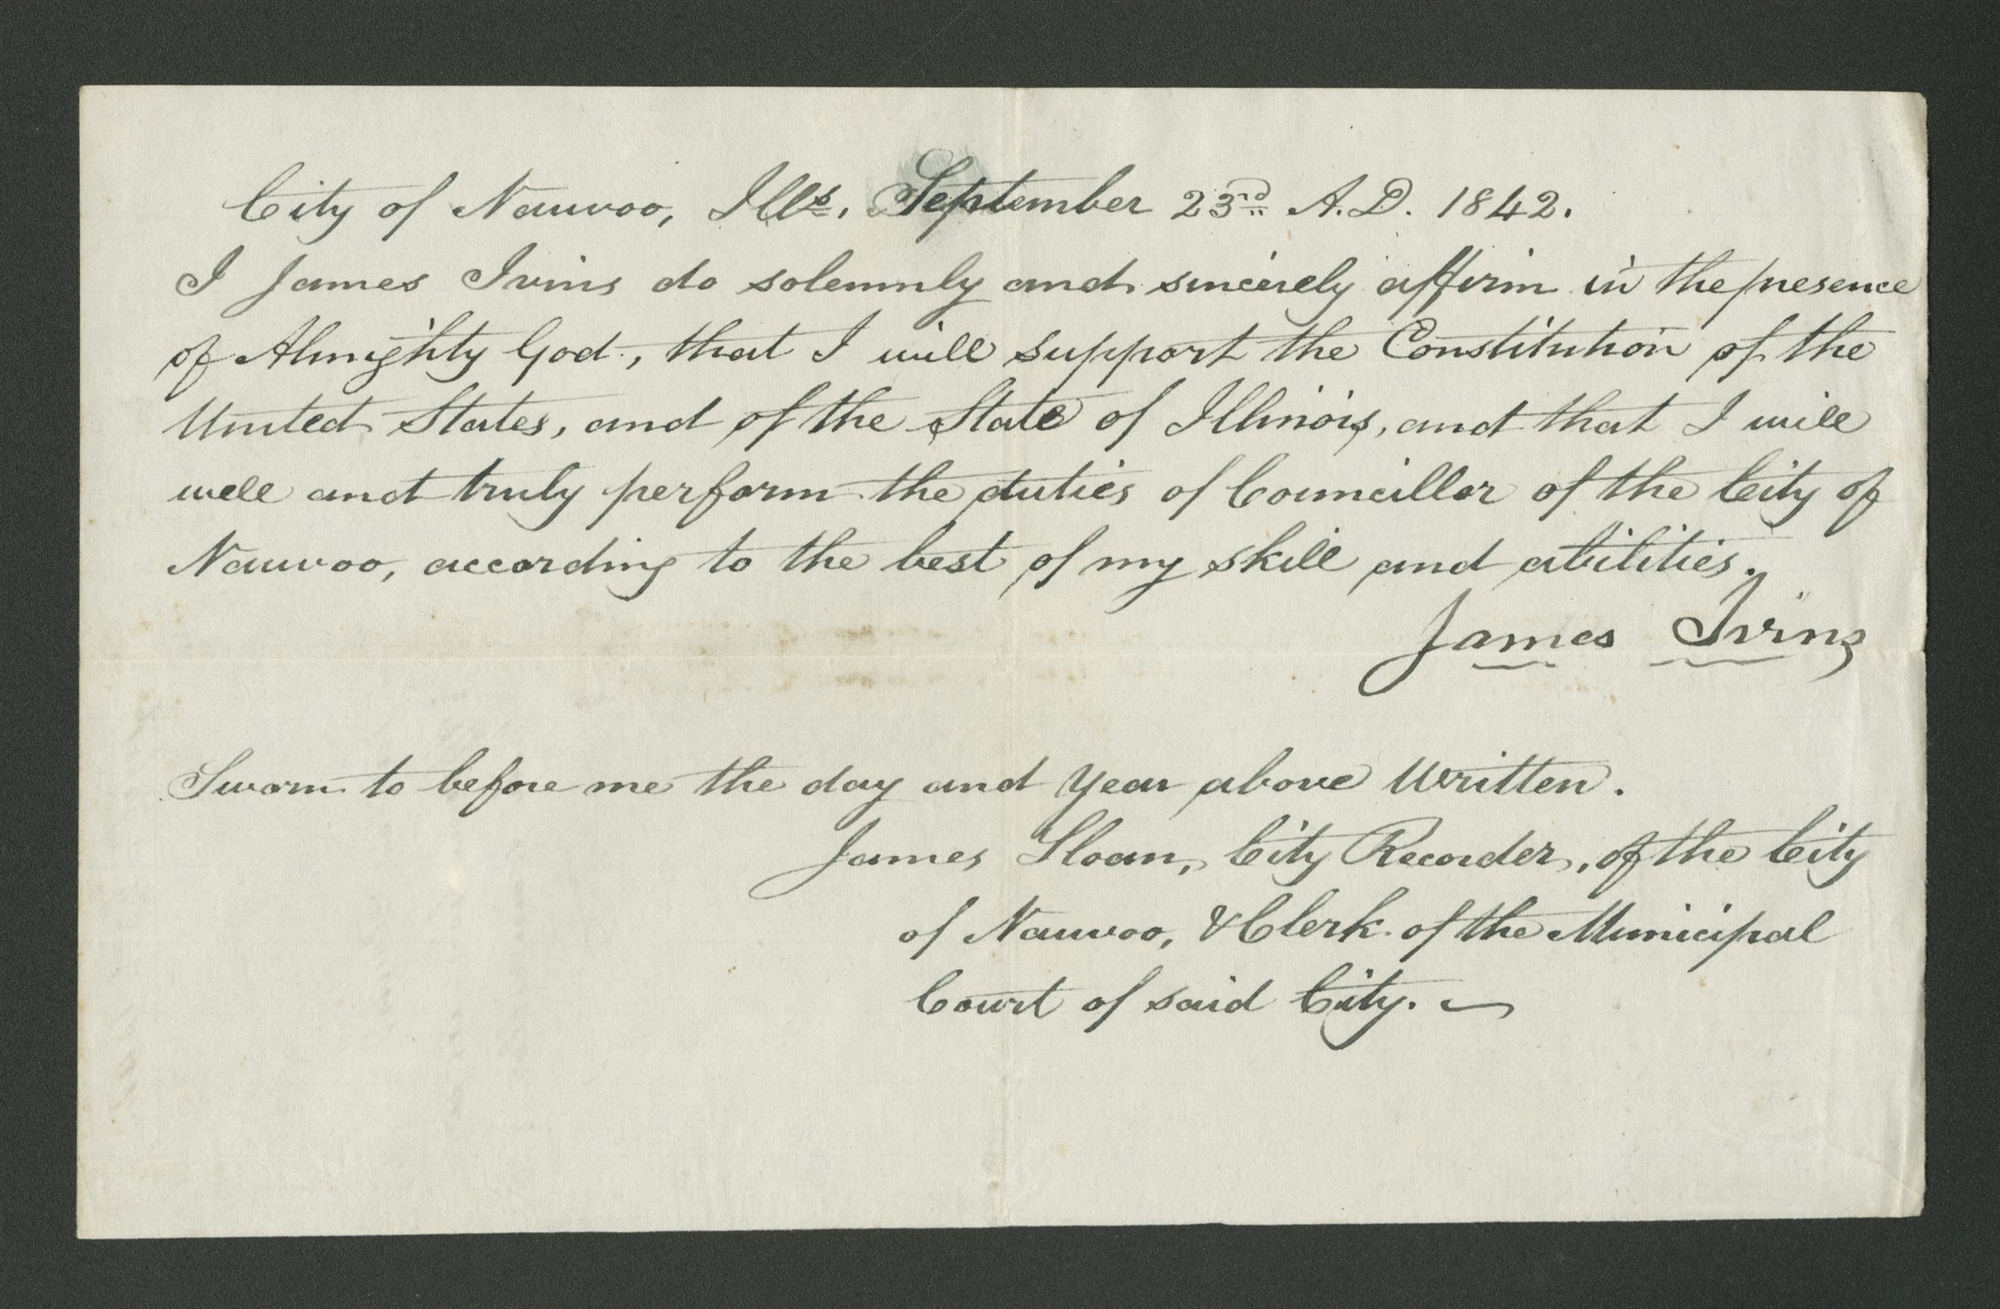 City of Nauvoo, Ills. September 23rd A.D. 1842.
I James Ivins do solemnly and sincerely affirm in the presence
of Almighty God, that I will support the Constitution of the
United States, and of the State of Illinois, and that I will
well and truly perform the duties of Councillor of the City of
Nauvoo, according to the best of my skill and abilities.
James Ivins
Sworn to before me the day and year above Written.
James Sloan, City Recorder, of the City
of Nauvoo, & Clerk of the Municipal
Court of said City.